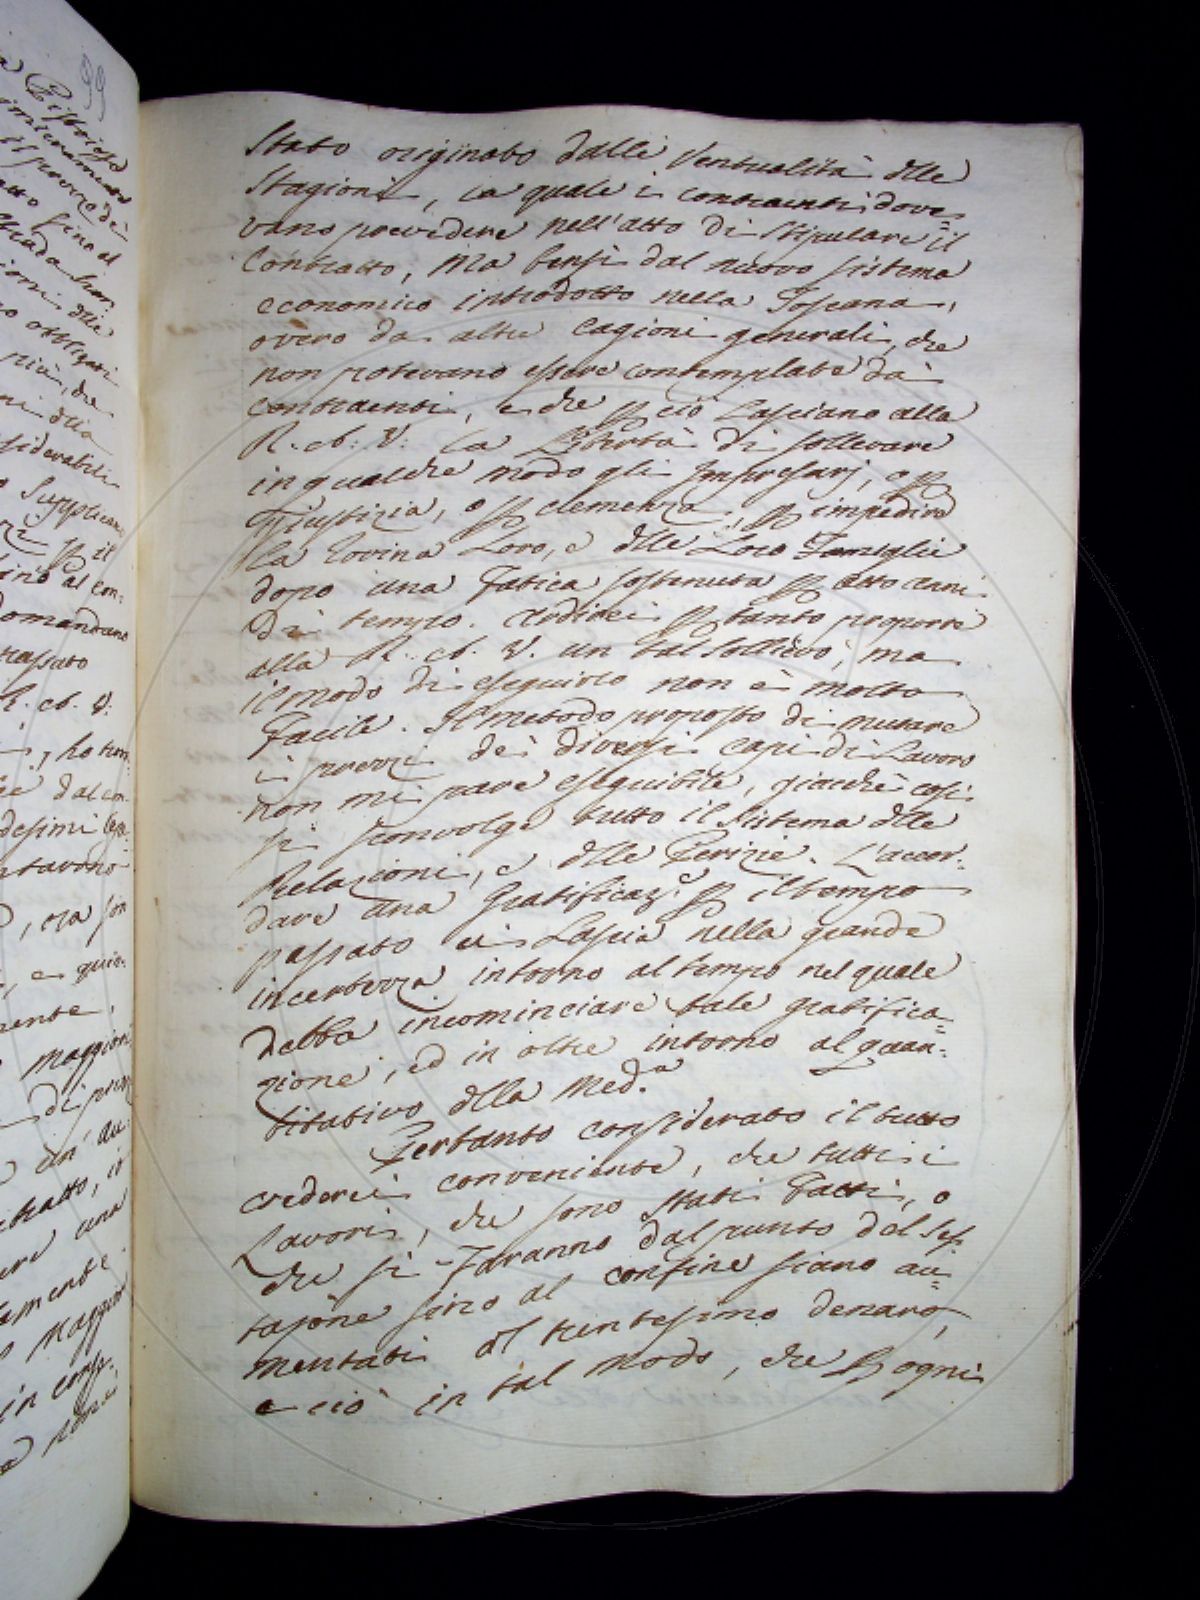 Stato originato dalle Ventualità delle
Stagioni, la quale i contraenti dove=
vano prevedere nell'atto di stipulare il
Contratto, Ma bensì dal nuovo sistema
economico introdotto nella Toscana,
overo da altre Cagioni generali, che
non potevano essere contemplate da
contraenti, e che p ciò Lasciano alla
R. A: V: la Libertà di sollevare
in qualche modo gli Impresarj, o p
Giustizia, o p clemenza, p impedire
la rovina Loro, e delle Loro Famiglie
dopo una Fatica sostenuta p otto anni
di tempo. Ardirei p tanto proporre
alla R. A. V. un tal sollievo, ma
il modo di eseguirlo non è molto
Facile. Il metodo proposto di mutare
i prezzi dei diversi capi di Lavoro
non mi pare eseguibile, giacchè così
si sconvolge tutto il Sistema delle
Relazioni, e delle Perizie. L'accor=
dare una Gratificaz.e p il tempo
passato ci Lascia nella grande
incertezza intorno al tempo nel quale
debba incominciare tale gratifica=
zione, ed in oltre intorno al quan=
titativo della Med.a
Pertanto considerato il tutto
crederei conveniente, che tutti i
Lavori, che sono stati Fatti, o
che si Faranno dal punto del
sino al confine siano au=
mentati al trentesimo denaro,
e ciò in tal modo, che p ogni
99
Pistoiese
intieramente
fino al
delle
obbligati
più, che
della
siderabili
Supplicano
p il
al con:
domandano
passato
R. A. V:
dal con=
ora son
e quin=
Maggiori
di prezzi
un' au=
una
Maggior
in conse=